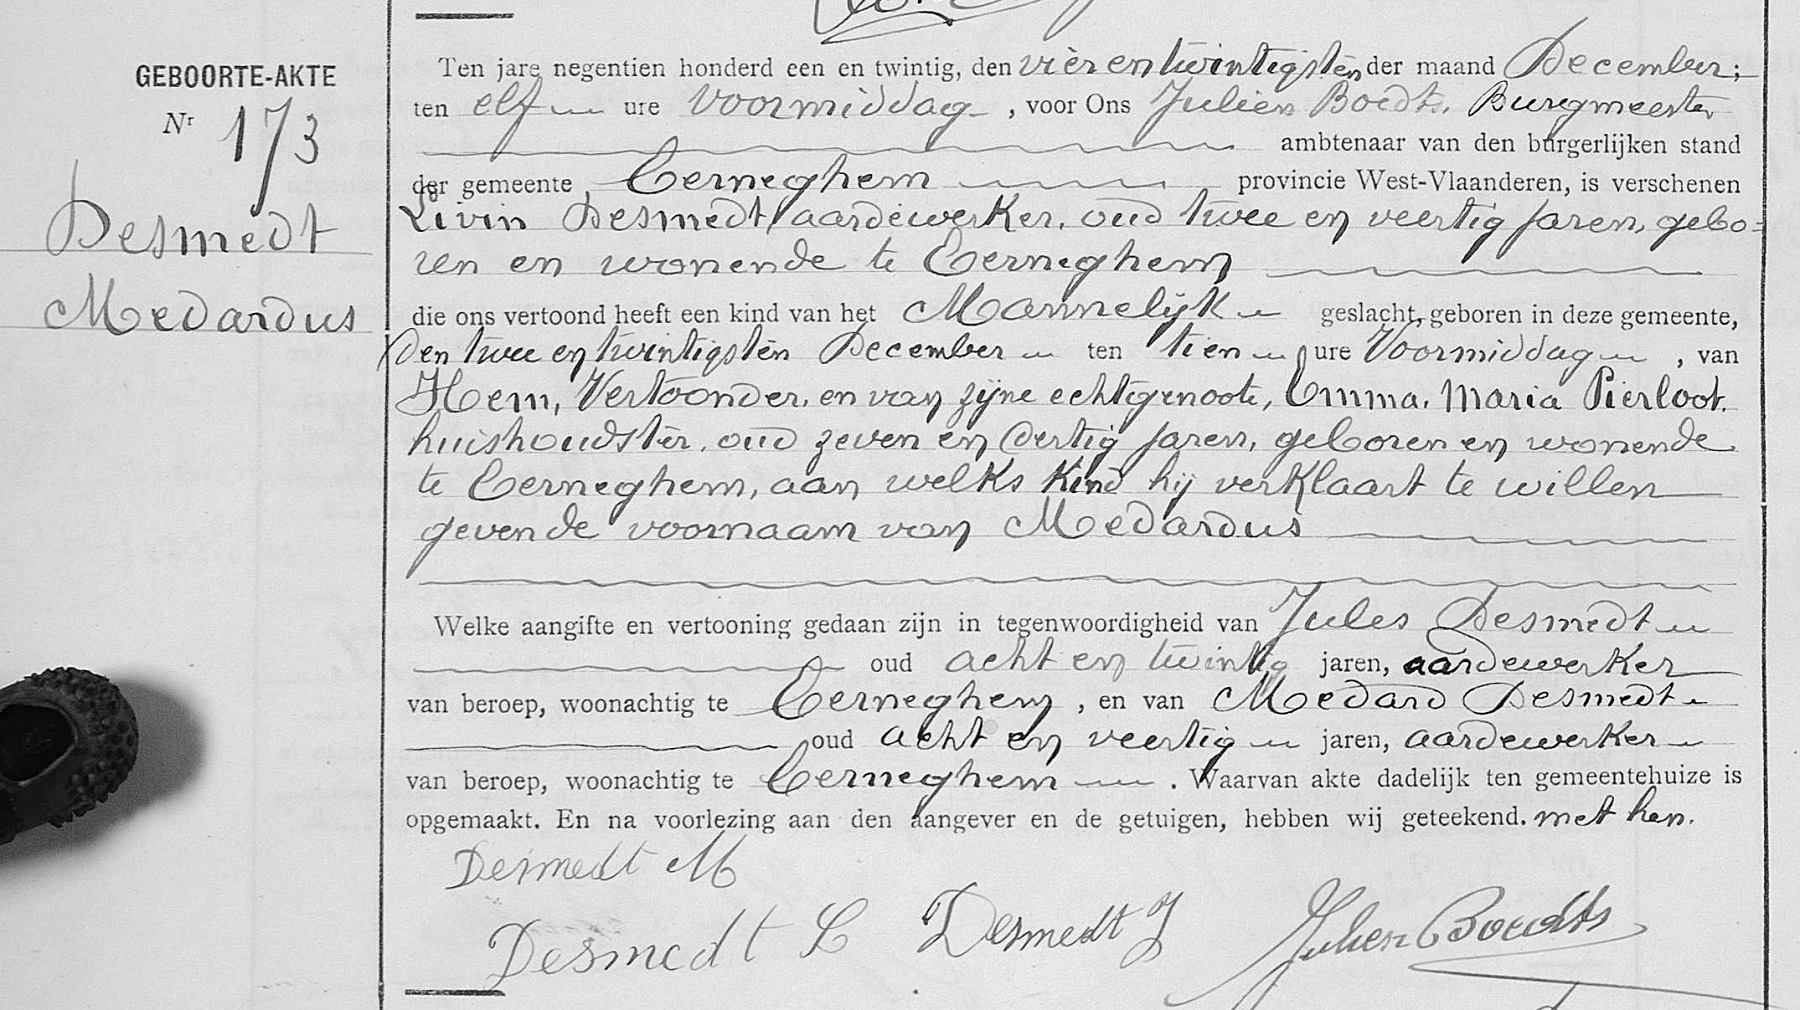 GEBOORTE-AKTE
Nr 173
Desmedt
Medardus
Ten jare negentien honderd een en twintig, den vier en twintigsten der maand December;
ten elf ure voormiddag, voor Ons Julien Boedts, Burgmeester
ambtenaar van den burgerlijken stand
der gemeente Eerneghem provincie West-Vlaanderen, is verschenen
Livin Desmedt, aardewerker, oud twee en veertig jaren, gebo=
ren en wonende te Eerneghem
die ons vertoond heeft een kind van het Mannelijk geslacht, geboren in deze gemeente,
den twee en twintigsten December ten tien ure Voormiddag, van
Hem, Vertoonder, en van zijne echtgenoote, Emma, Maria Pierloot,
huishoudster, oud zeven en dertig jaren, geboren en wonende
te Eerneghem, aan welks kind hij verklaart te willen
geven de voornaam van Medardus
Welke aangifte en vertooning gedaan zijn in tegenwoordigheid van Jules Desmedt
oud acht en twintig jaren, aardewerker
van beroep, woonachtig te Eerneghem, en van Medard Desmedt
oud acht en veertig jaren, aardewerker
van beroep, woonachtig te Eerneghem. Waarvan akte dadelijk ten gemeentehuize is
opgemaakt. En na voorlezing aan den aangever en de getuigen, hebben wij geteekend. met hen.
Desmedt M
Desmedt L Desmedt J Julien Boedts